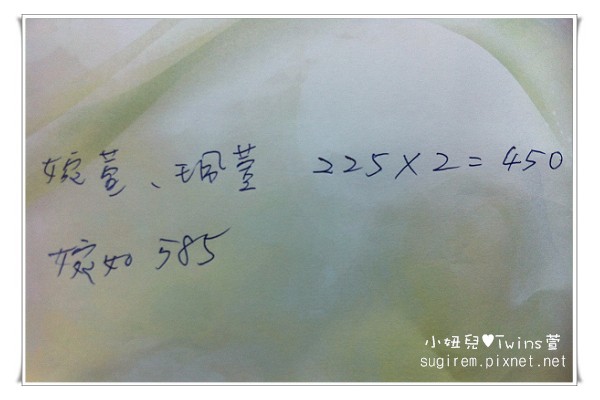 婉萱、珮萱 225×2=450
婉如 585
小妞兒♥Twins萱
sugirem.pixnet.net